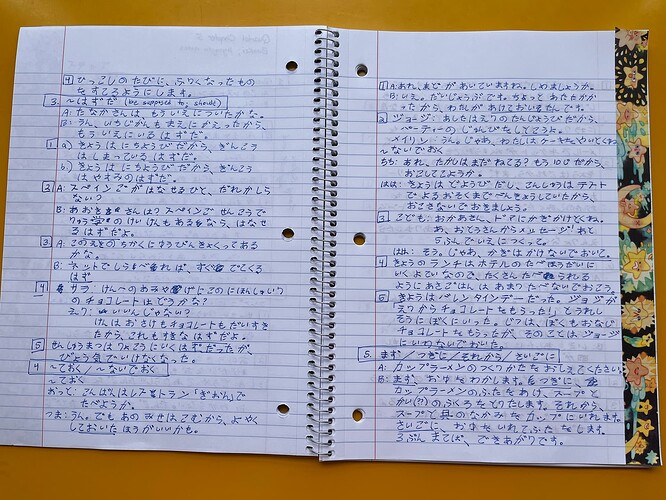 4 ひっこしのたびに、ふりょくなったもの
をすてるようにします。
3. ～はずだ (be supposed to, should)
A: たなかさんは もういえについたかな。
B: うん、いちじかんもまえにかえったから、
もういえにいるはずだ。
1 a) きょうはにちようびだから、ぎんこう
はしまっているはずだ。
b.) きょうはにちようびだから、ぎんこう
はやすみのはずだ。
2 A: スペインごがはなせるひと、だれかしら
ない?
B: あおきさんは? スペインごせんこうで
りゅう学のけいけんもあるなら、はなせ
るはずだよ。
3. A: このえきのちかくにゆうびんきょくってある
かな。
B: ネットでしらべれば、すぐでてくる
はず
4 サラ: けんへのおみやげにこのにほんしゅいり
のチョコレートはどうかな?
ミク: いいんじゃない?
けんはおさけもチョコレートもだいすき
だから、これもすきなはずだよ。
5 せんしゅうまつはりょこうにいくはずだったが、
びょう気でいけなくなった。
4 ～ておく/～ないでおく
～ておく
おっと: こんばんはレストラン「ぎおん」で
たべようか。
つま: うん。でもあのみせはこむから、よやく
しておいたほうがいいかも。
1 A: あれ、まどがあいていますね。しめましょうか。
B: いえ。だいじょうぶです。ちょっとあたたかか
ったから、わたしがあけておいたんです。
2 ジョージ: あしたはえりのたんじょうびだから、
パーティーのじゅんびをしてこうよ。
メイリン: うん。じゃあ、わたしはケーキをやいとくね。
～ないでおく
ちち: あれ、たかしはまだねてる? もう10じだから、
おこしてこようか。
はは: きょうはどようびだし、こんしゅうはテスト
でよるおそくまでべんきょうしていたから、
おこさないでおきましょう。
3 こども: おかあさん、ドアにかぎかけとくね。
あ、おとうさんからメッセージ! あと
5ふんでいえにつくって。
はは: そう。じゃあ、かぎはかけないでおいて。
4 きょうのランチはホテルのたべほうだいに
いくよていなので、たくさんたべられる
ようにあさごはんはあまりたべないでおこう。
5 きょうはバレンタインデーだった。ジョージが
「えりからチョコレートをもらった!」とうれし
そうにぼくにいった。じつは、ぼくもおなじ
チョコレートをもらったが、そのことはジョージ
にいわないでおいた。
5. まず/つぎに/それから/さいごに
A: カップラーメンのつくりかたをおしえてください。
B: まず、おゆをわかします。つぎに、
カップラーメンのふたをあけ、スープと
かい(?)のふくろをとりだします。それから、
スープと具のなかみをカップにいれます。
さいごに、おゆをいれてふたをします。
3ぷんまてば、できあがりです。